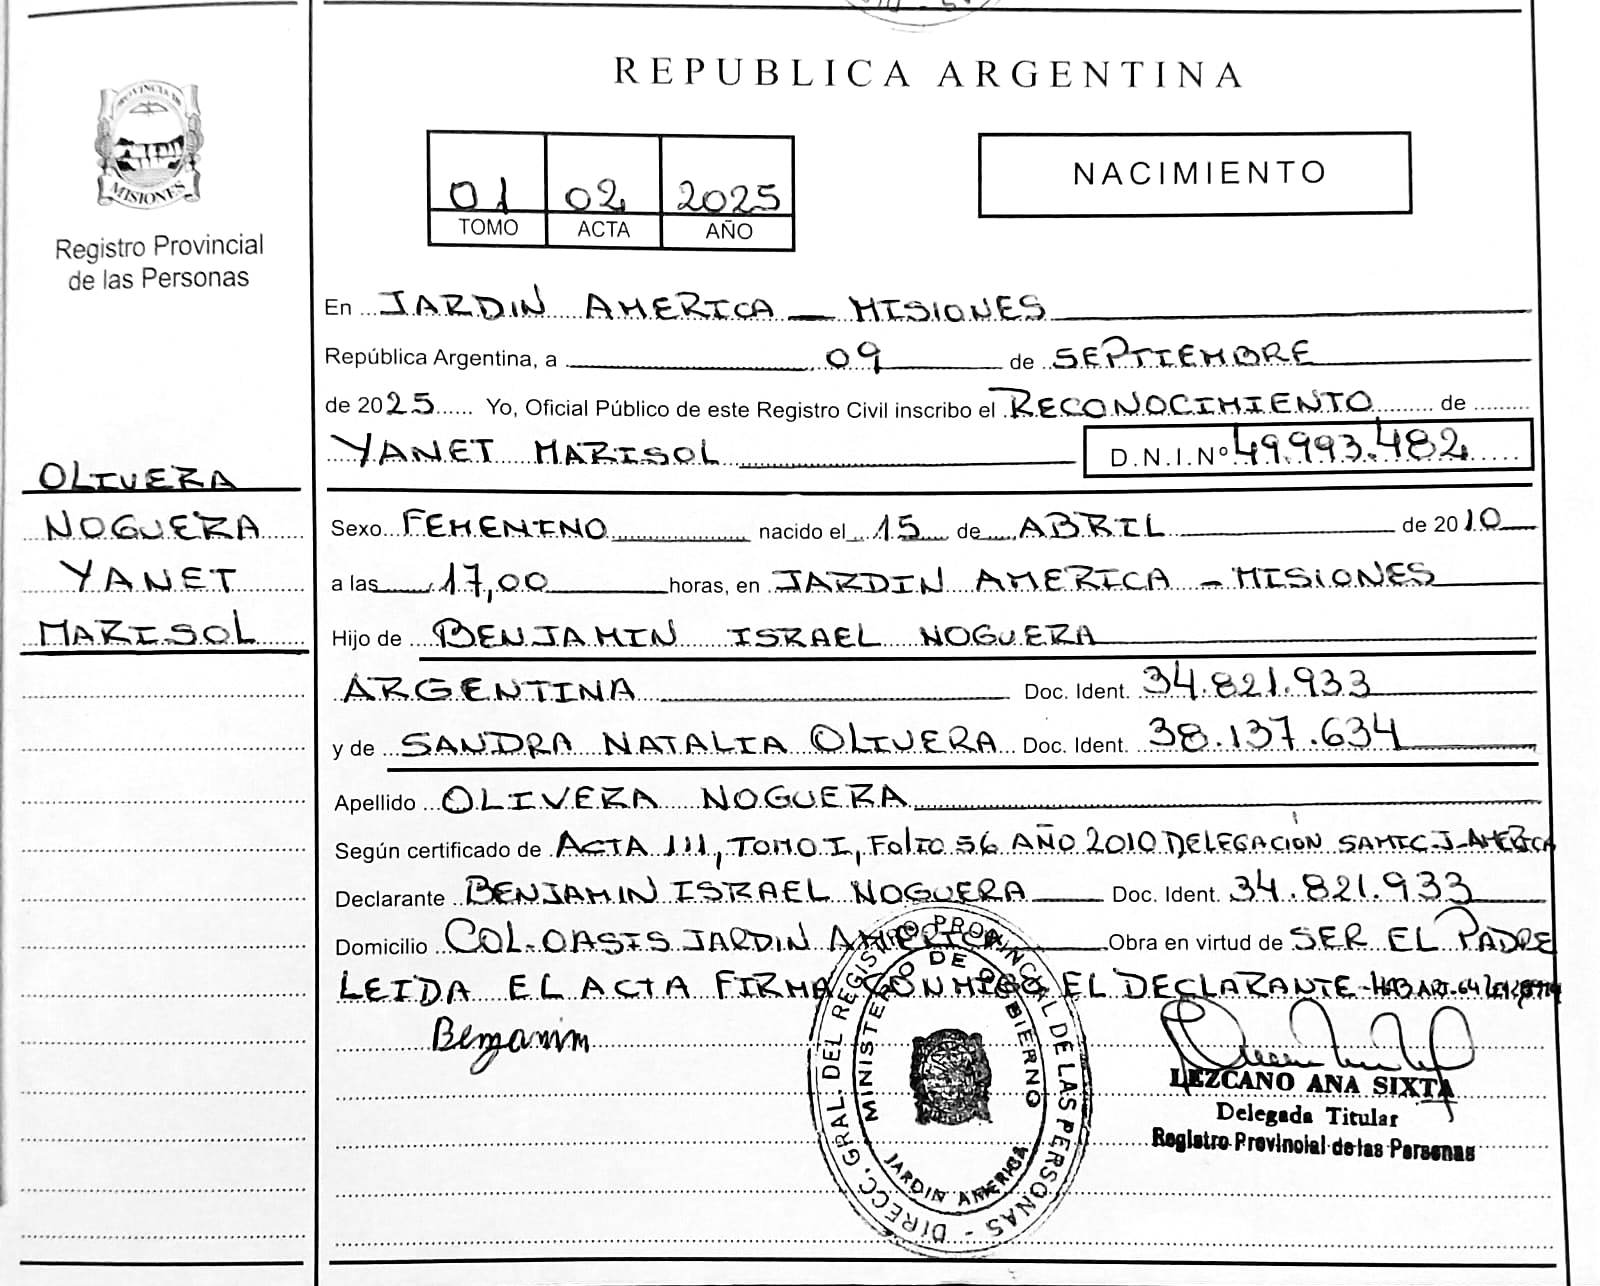 REPUBLICA ARGENTINA
PROVINCIA DE
MISIONES
Registro Provincial
de las Personas
01 02 2025
TOMO ACTA AÑO
NACIMIENTO
En JARDIN AMERICA - MISIONES
República Argentina, a 09 de SEPTIEMBRE
de 2025 Yo, Oficial Público de este Registro Civil inscribo el RECONOCIMIENTO de
YANET MARISOL D.N.I.Nº 49.993.482
OLIVERA
NOGUERA
YANET
MARISOL
Sexo FEMENINO nacido el 15 de ABRIL de 2010
a las 17,00 horas, en JARDIN AMERICA - MISIONES
Hijo de BENJAMIN ISRAEL NOGUERA
ARGENTINA Doc. Ident. 34.821.933
y de SANDRA NATALIA OLIVERA Doc. Ident. 38.137.634
Apellido OLIVERA NOGUERA
Según certificado de ACTA 111, TOMO I, Folio 56 AÑO 2010 DELEGACIÓN SAMIC J. AMERICA
Declarante BENJAMIN ISRAEL NOGUERA Doc. Ident. 34.821.933
Domicilio COL. OASIS JARDIN AMERICA Obra en virtud de SER EL PADRE
LEIDA EL ACTA FIRMA CONMIGO EL DECLARANTE - HAB ART. 64
Benjamin
DIRECC. GRAL. DEL REGISTRO PROVINCIAL DE LAS PERSONAS -
MINISTERIO DE GOBIERNO
JARDIN AMERICA
LEZCANO ANA SIXTA
Delegada Titular
Registro Provincial de las Personas